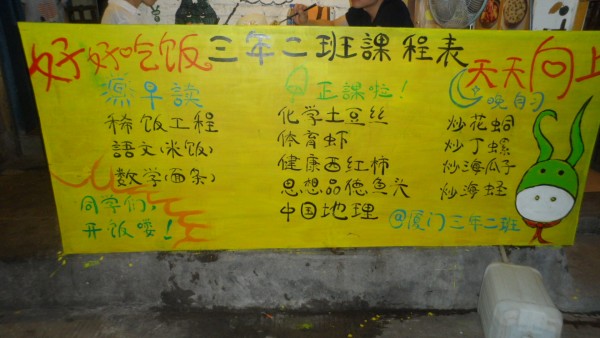 好好吃饭 三年二班課程表 天天向上
早读
稀饭工程
語文(米饭)
数学(面条)
同学们!
开饭喽!
正課啦!
化学土豆丝
体育虾
健康西红柿
思想品德鱼头
中国地理
晚自习
炒花
炒丁螺
炒海瓜子
炒海蛏
@厦门三年二班